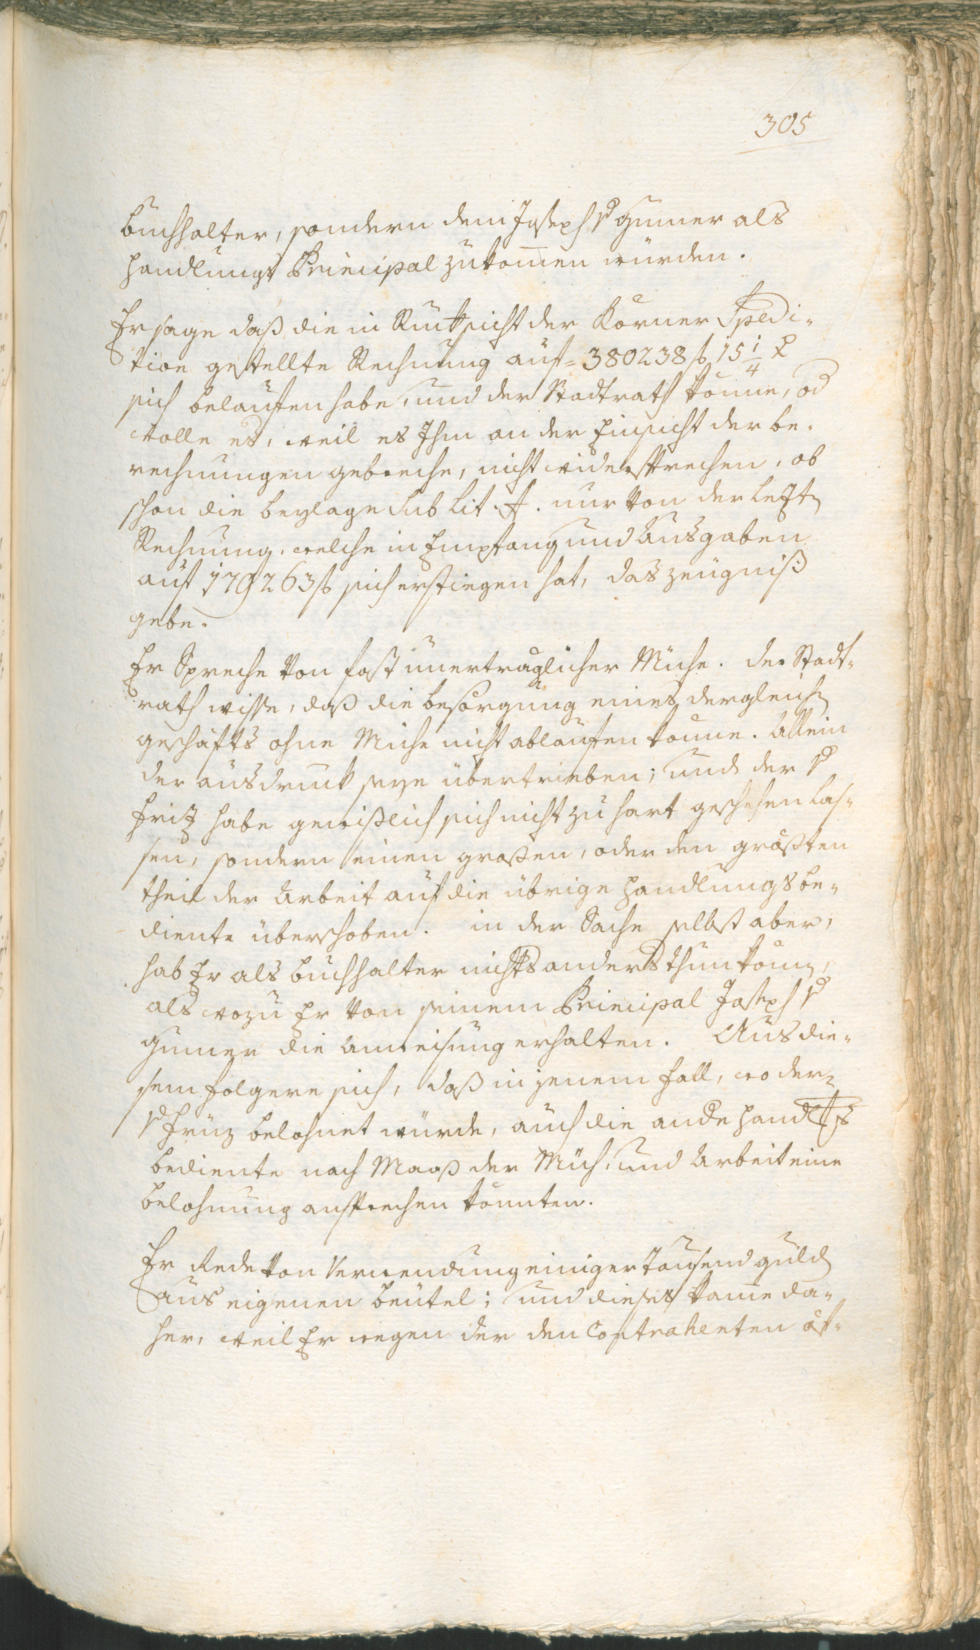 305
Buchhalter, sondern dem Joseph v Gumer als
Handlungs Principal zukommen würden.
Er sage daß die in Rüksicht der Körner Spedi-
tion gestellte Rechnung auf = 380238 f 15 1/4 x
sich belaufen habe, und der Stadtrath könne, od
wolle es, weil es Ihm an der Einsicht der be-
rechnungen gebreche, nicht widersprechen, ob
schon die beylage sub Lit. A. nur von der lezt
Rechnung, welche in Empfang und Ausgaben
auf 179263 f sich erstiegen hat, das zeugniß
gebe.
Er Spreche von fast unerträglicher Mühe. der Stadt-
rath wisse, daß die besorgung eines dergleich
geschäfts ohne Mühe nicht ablaufen könne. Allein
der ausdruck seye übertrieben; und der v
Friz habe gewißlich sich nicht zu hart geschehen las-
sen, sondern einen großen, oder den größten
theil der Arbeit auf die übrige handlungs be-
diente überschoben. in der Sache selbst aber,
hab Er als buchhalter nichts anders thun könn,
als wozu Er von seinem Principal Joseph v
Gumer die anweisung erhalten. Aus die-
sem folgere sich, daß in jenem fall, wo der
v Friz belohnet würde, auch die ande handlgs
bediente nach Maaß der Müh, und Arbeit eine
belohnung ansprechen könnten.
Er Rede von Verwendung einiger tausend guld
aus eigenen beutel; und dieses kame da-
her, weil Er wegen der den Contrahenten öf-